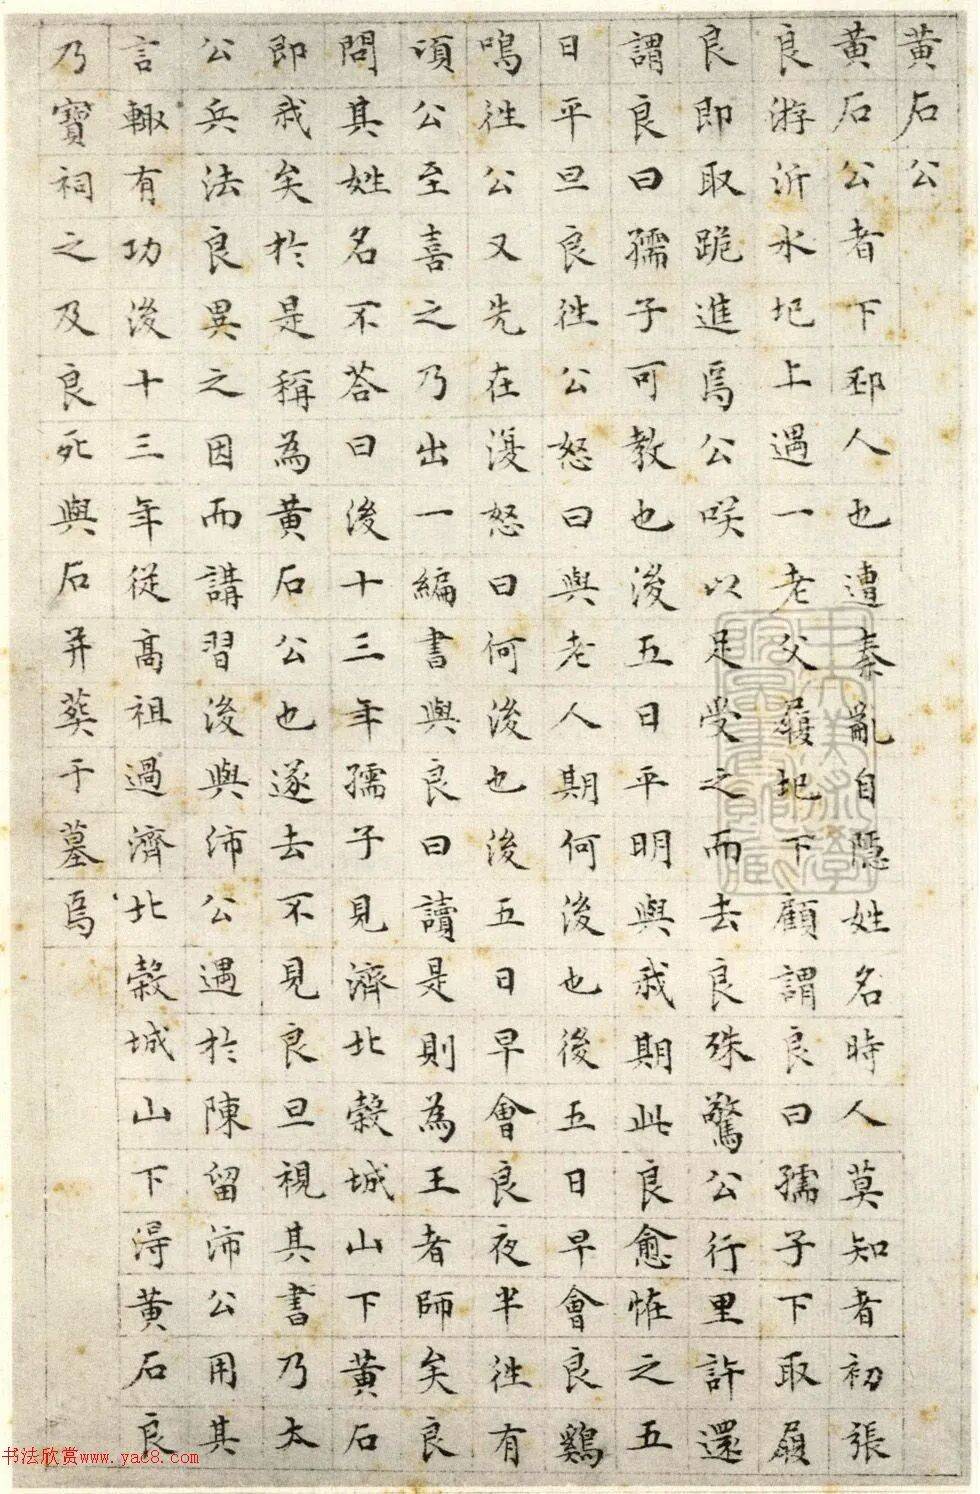 黃石公
黃石公者下邳人也遭秦亂自隱姓名時人莫知者初張
良游沂水圯上遇一老父履圯下顧謂良曰孺子下取履
良即取跪進焉公咲以足受之而去良殊驚公行里許還
謂良曰孺子可教也後五日平明與我期此良愈恠之五
日平旦良往公怒曰與老人期何後也後五日早會良鷄
鳴往公又先在復怒曰何後也後五日早會良夜半往有
頃公至喜之乃出一編書與良曰讀是則為王者師矣良
問其姓名不答曰後十三年孺子見濟北穀城山下黃石
即我矣於是稱為黃石公也遂去不見良旦視其書乃太
公兵法良異之因而講習後與沛公遇於陳留沛公用其
言輒有功後十三年從高祖過濟北穀城山下得黃石良
乃寶祠之及良死與石并葬于墓焉
书法欣赏www.yac8.com